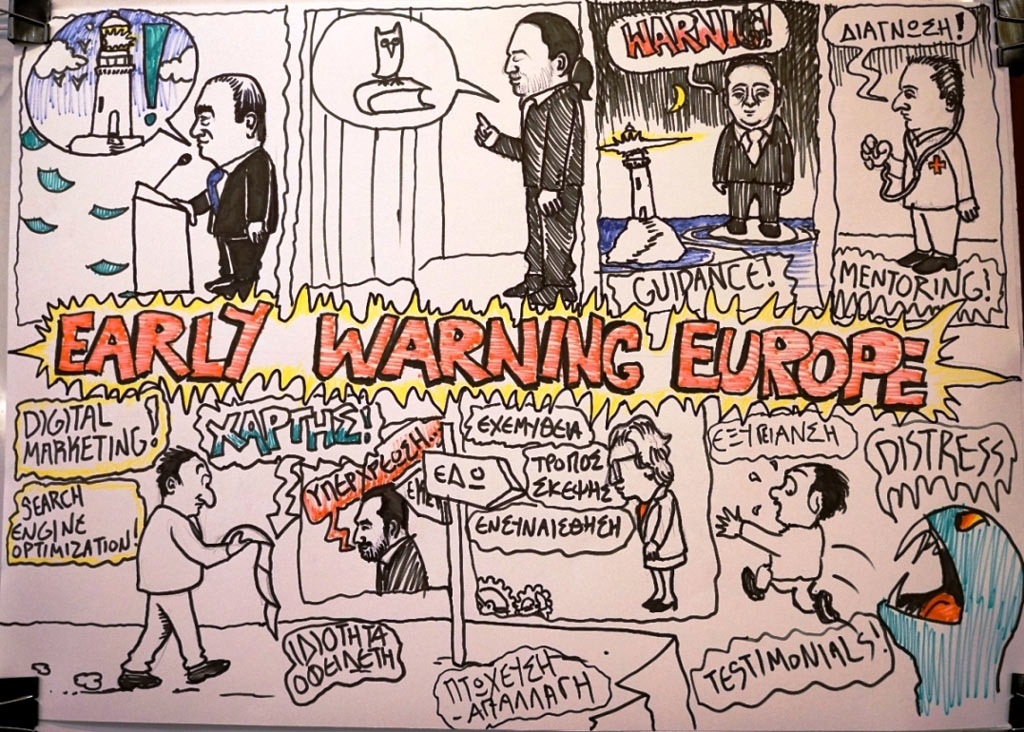 WARNING!
ΔΙΑΓΝΩΣΗ!
GUIDANCE!
MENTORING!
EARLY WARNING EUROPE
DIGITAL
MARKETING!
SEARCH
ENGINE
OPTIMIZATION!
ΧΑΡΤΗΣ!
ΥΠΕΡΧΡΕΩΣΗ...
ΕΔΩ
ΕΧΕΜΥΘΕΙΑ
ΤΡΟΠΟΣ
ΣΚΕΨΗΣ
ΕΝΣΥΝΑΙΣΘΗΣΗ
ΕΞΥΓΙΑΝΣΗ
DISTRESS
ΙΔΙΟΤΗΤΑ
ΟΦΕΙΛΕΤΗ
ΠΤΩΧΕΥΣΗ
-ΑΠΑΛΛΑΓΗ
TESTIMONIALS!